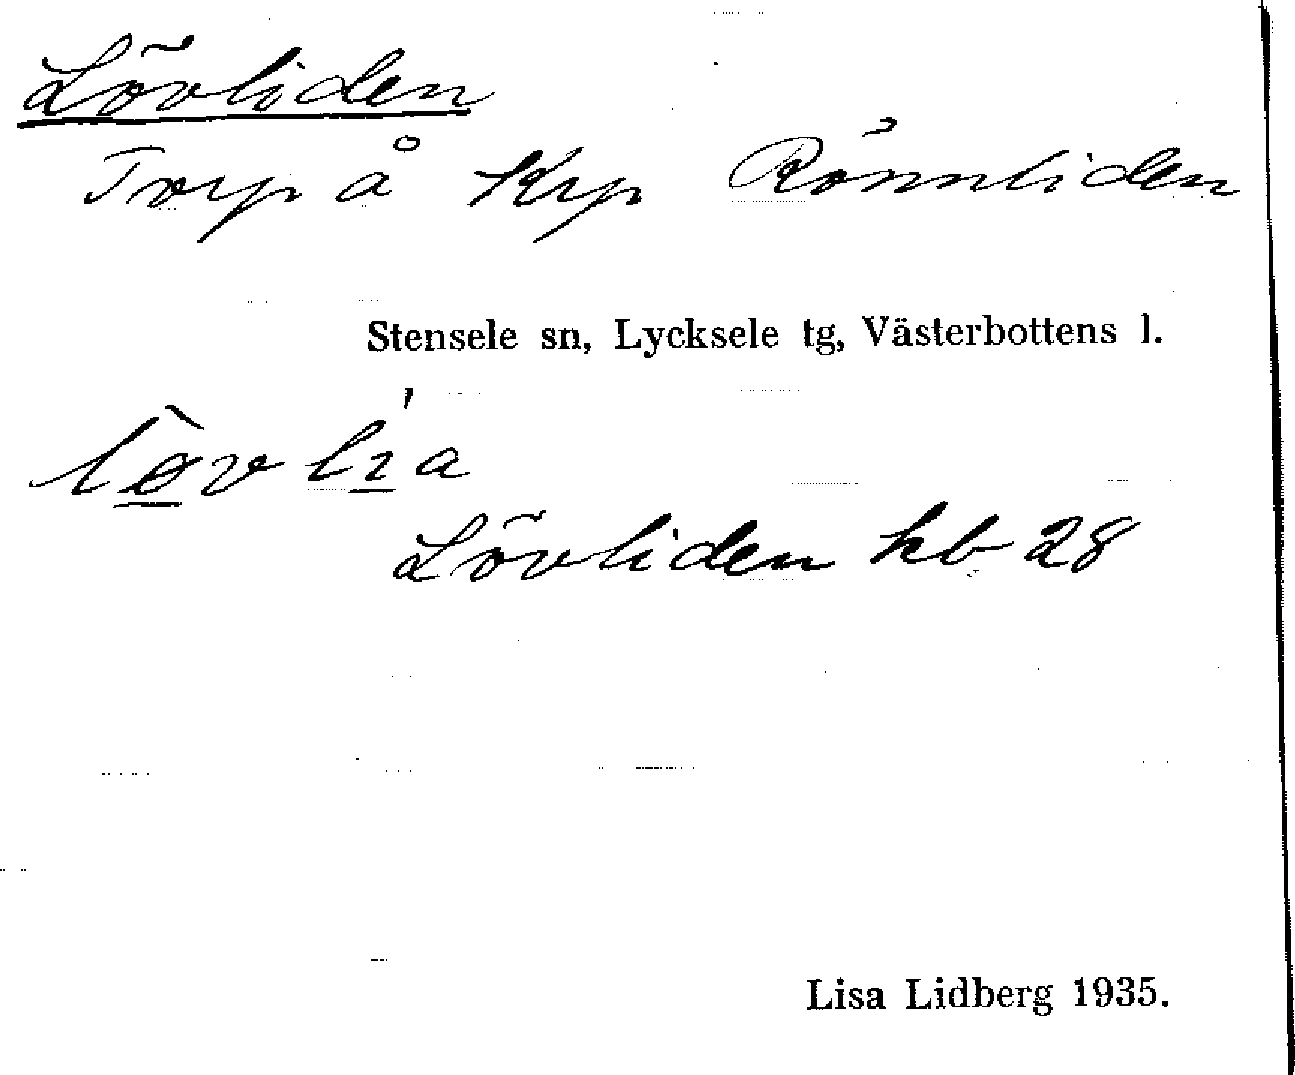 Lövliden
Torp å Krp Rönnliden
Stensele sn, Lycksele tg, Västerbottens l.
lø̠̀v lɪ̠́a
Lövliden hb 28
Lisa Lidberg 1935.